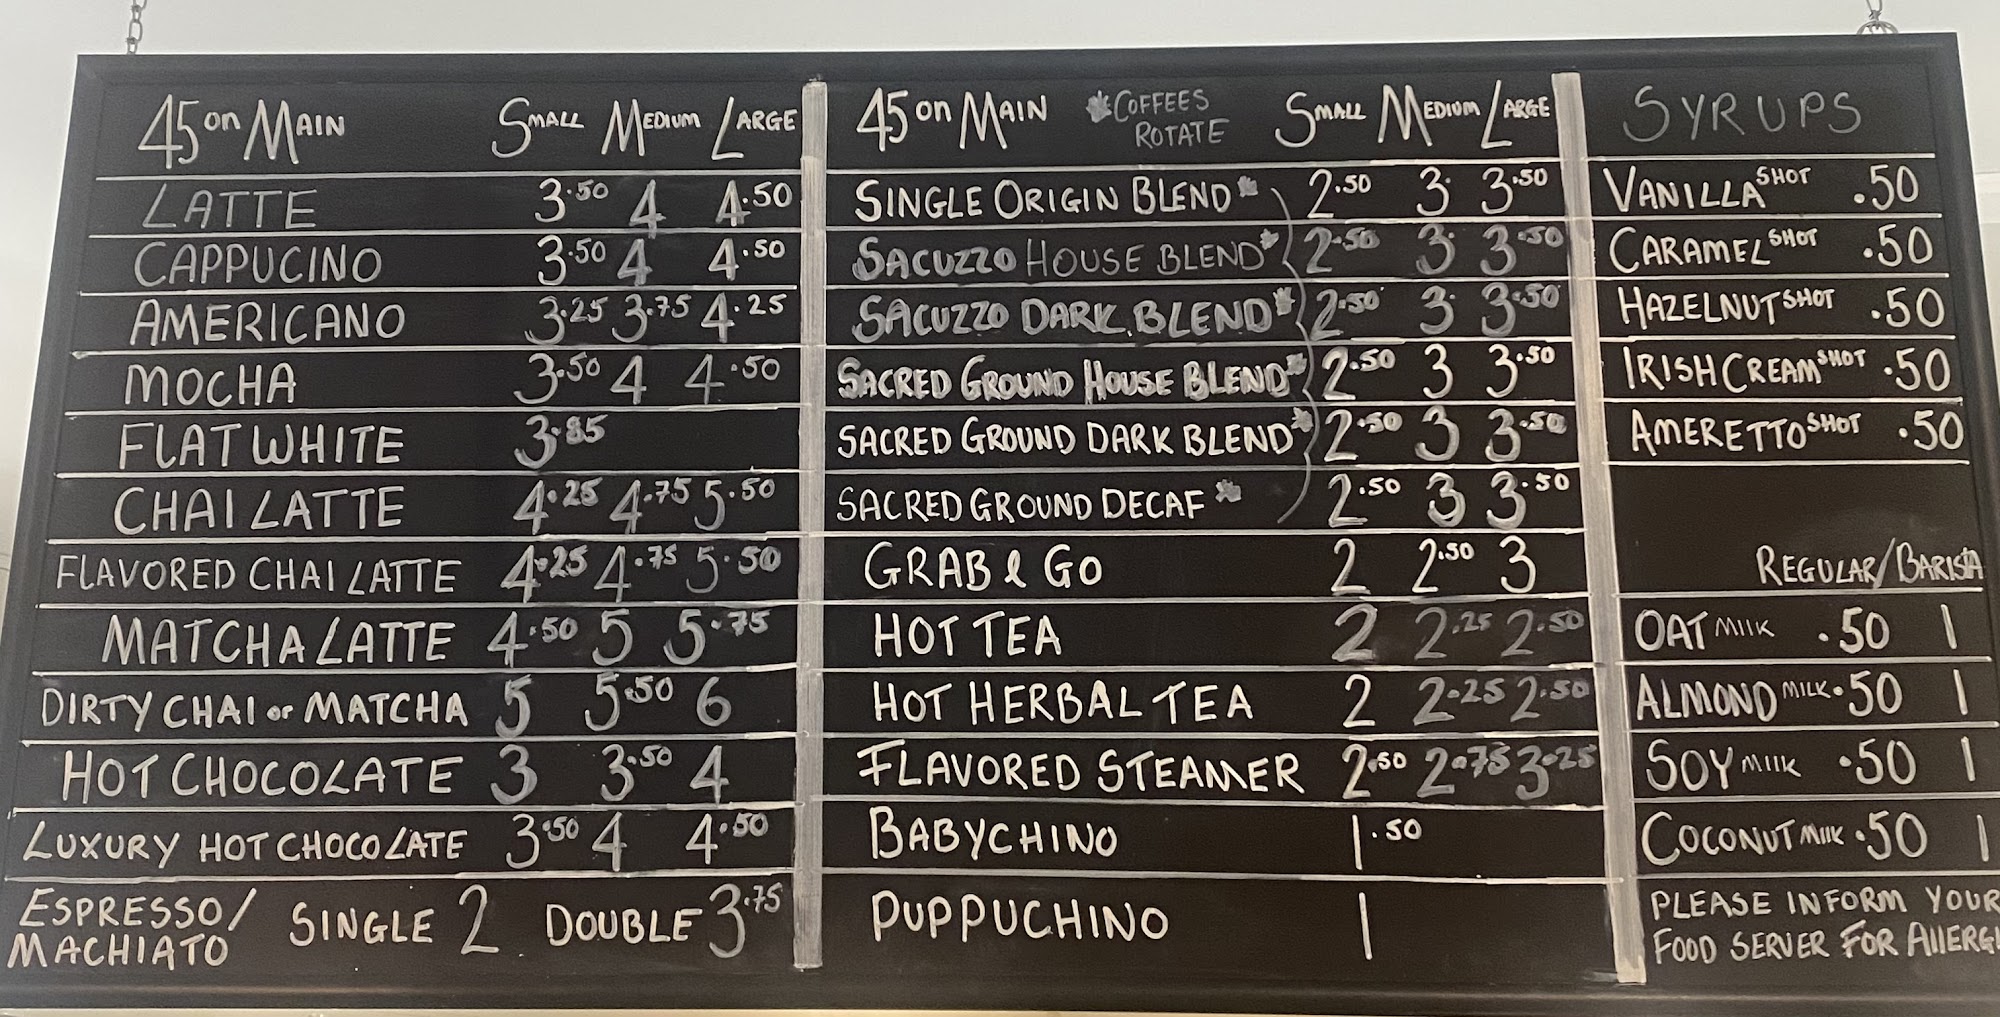 45 on MAIN SMALL MEDIUM LARGE
LATTE 3.50 4 4.50
CAPPUCINO 3.50 4 4.50
AMERICANO 3.25 3.75 4.25
MOCHA 3.50 4 4.50
FLAT WHITE 3.85
CHAI LATTE 4.25 4.75 5.50
FLAVORED CHAI LATTE 4.25 4.75 5.50
MATCHA LATTE 4.50 5 5.75
DIRTY CHAI or MATCHA 5 5.50 6
HOT CHOCOLATE 3 3.50 4
LUXURY HOT CHOCOLATE 3.50 4 4.50
ESPRESSO/
MACHIATO SINGLE 2 DOUBLE 3.75
45 on MAIN *COFFEES ROTATE SMALL MEDIUM LARGE
SINGLE ORIGIN BLEND* 2.50 3 3.50
SACUZZO HOUSE BLEND* 2.50 3 3.50
SACUZZO DARK BLEND* 2.50 3 3.50
SACRED GROUND HOUSE BLEND* 2.50 3 3.50
SACRED GROUND DARK BLEND* 2.50 3 3.50
SACRED GROUND DECAF* 2.50 3 3.50
GRAB & GO 2 2.50 3
HOT TEA 2 2.25 2.50
HOT HERBAL TEA 2 2.25 2.50
FLAVORED STEAMER 2.50 2.75 3.25
BABYCHINO 1.50
PUPPUCHINO 1
SYRUPS
VANILLA SHOT .50
CARAMEL SHOT .50
HAZELNUT SHOT .50
IRISH CREAM SHOT .50
AMERETTO SHOT .50
REGULAR/BARISTA
OAT MILK .50 1
ALMOND MILK .50 1
SOY MILK .50 1
COCONUT MILK .50 1
PLEASE INFORM YOUR
FOOD SERVER FOR AllERGI